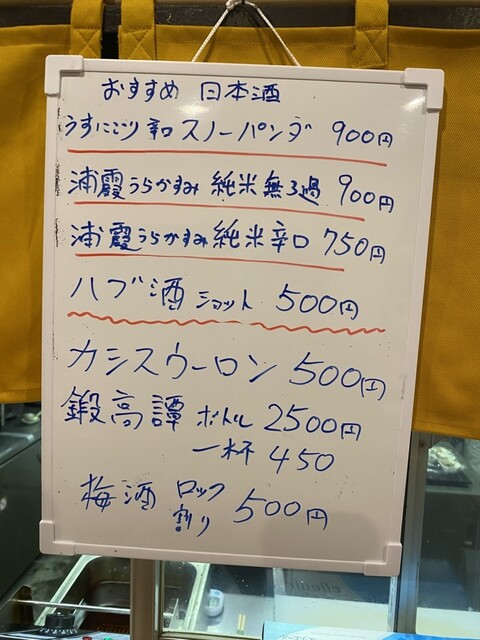 おすすめ 日本酒
うすにごり 辛口 スノーパンダ 900円
浦霞 うらかすみ 純米無ろ過 900円
浦霞 うらかすみ 純米辛口 750円
ハブ酒 ショット 500円
カシスウーロン 500円
鍛高譚 ボトル 2500円
一杯 450
梅酒 ロック 割り 500円